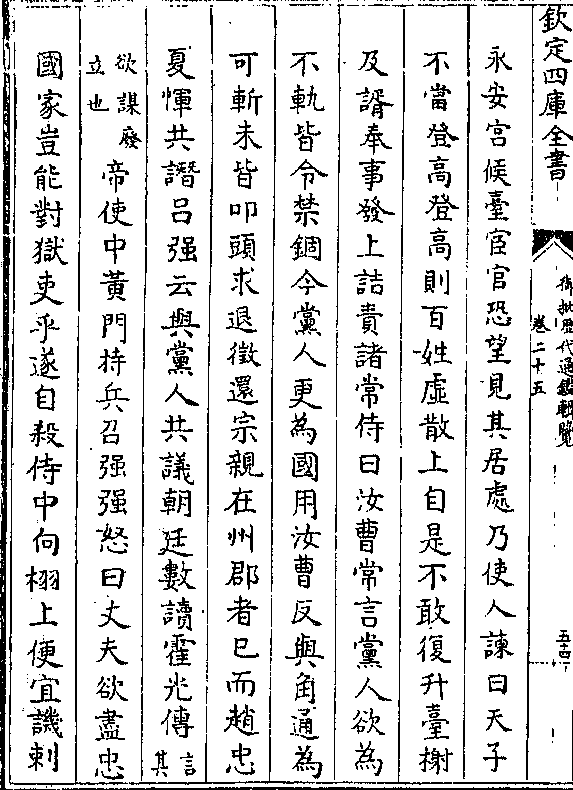 欽定四庫全書
御批歷代通鑑輯覽
卷二十五
五十四
永安宮候臺宦官恐望見其居處乃使人諫曰天子
不當登高登高則百姓虛散上自是不敢復升臺榭
及諝奉事發上詰責諸常侍曰汝曹常言黨人欲為
不軌皆令禁錮今黨人更為國用汝曹反與角通為
可斬未皆叩頭求退徵還宗親在州郡者已而趙忠
夏惲共譖呂强云與黨人共議朝廷數讀霍光傳言其
欲謀廢立也帝使中黃門持兵召强强怒曰丈夫欲盡忠
國家豈能對獄吏乎遂自殺侍中向栩上便宜譏刺